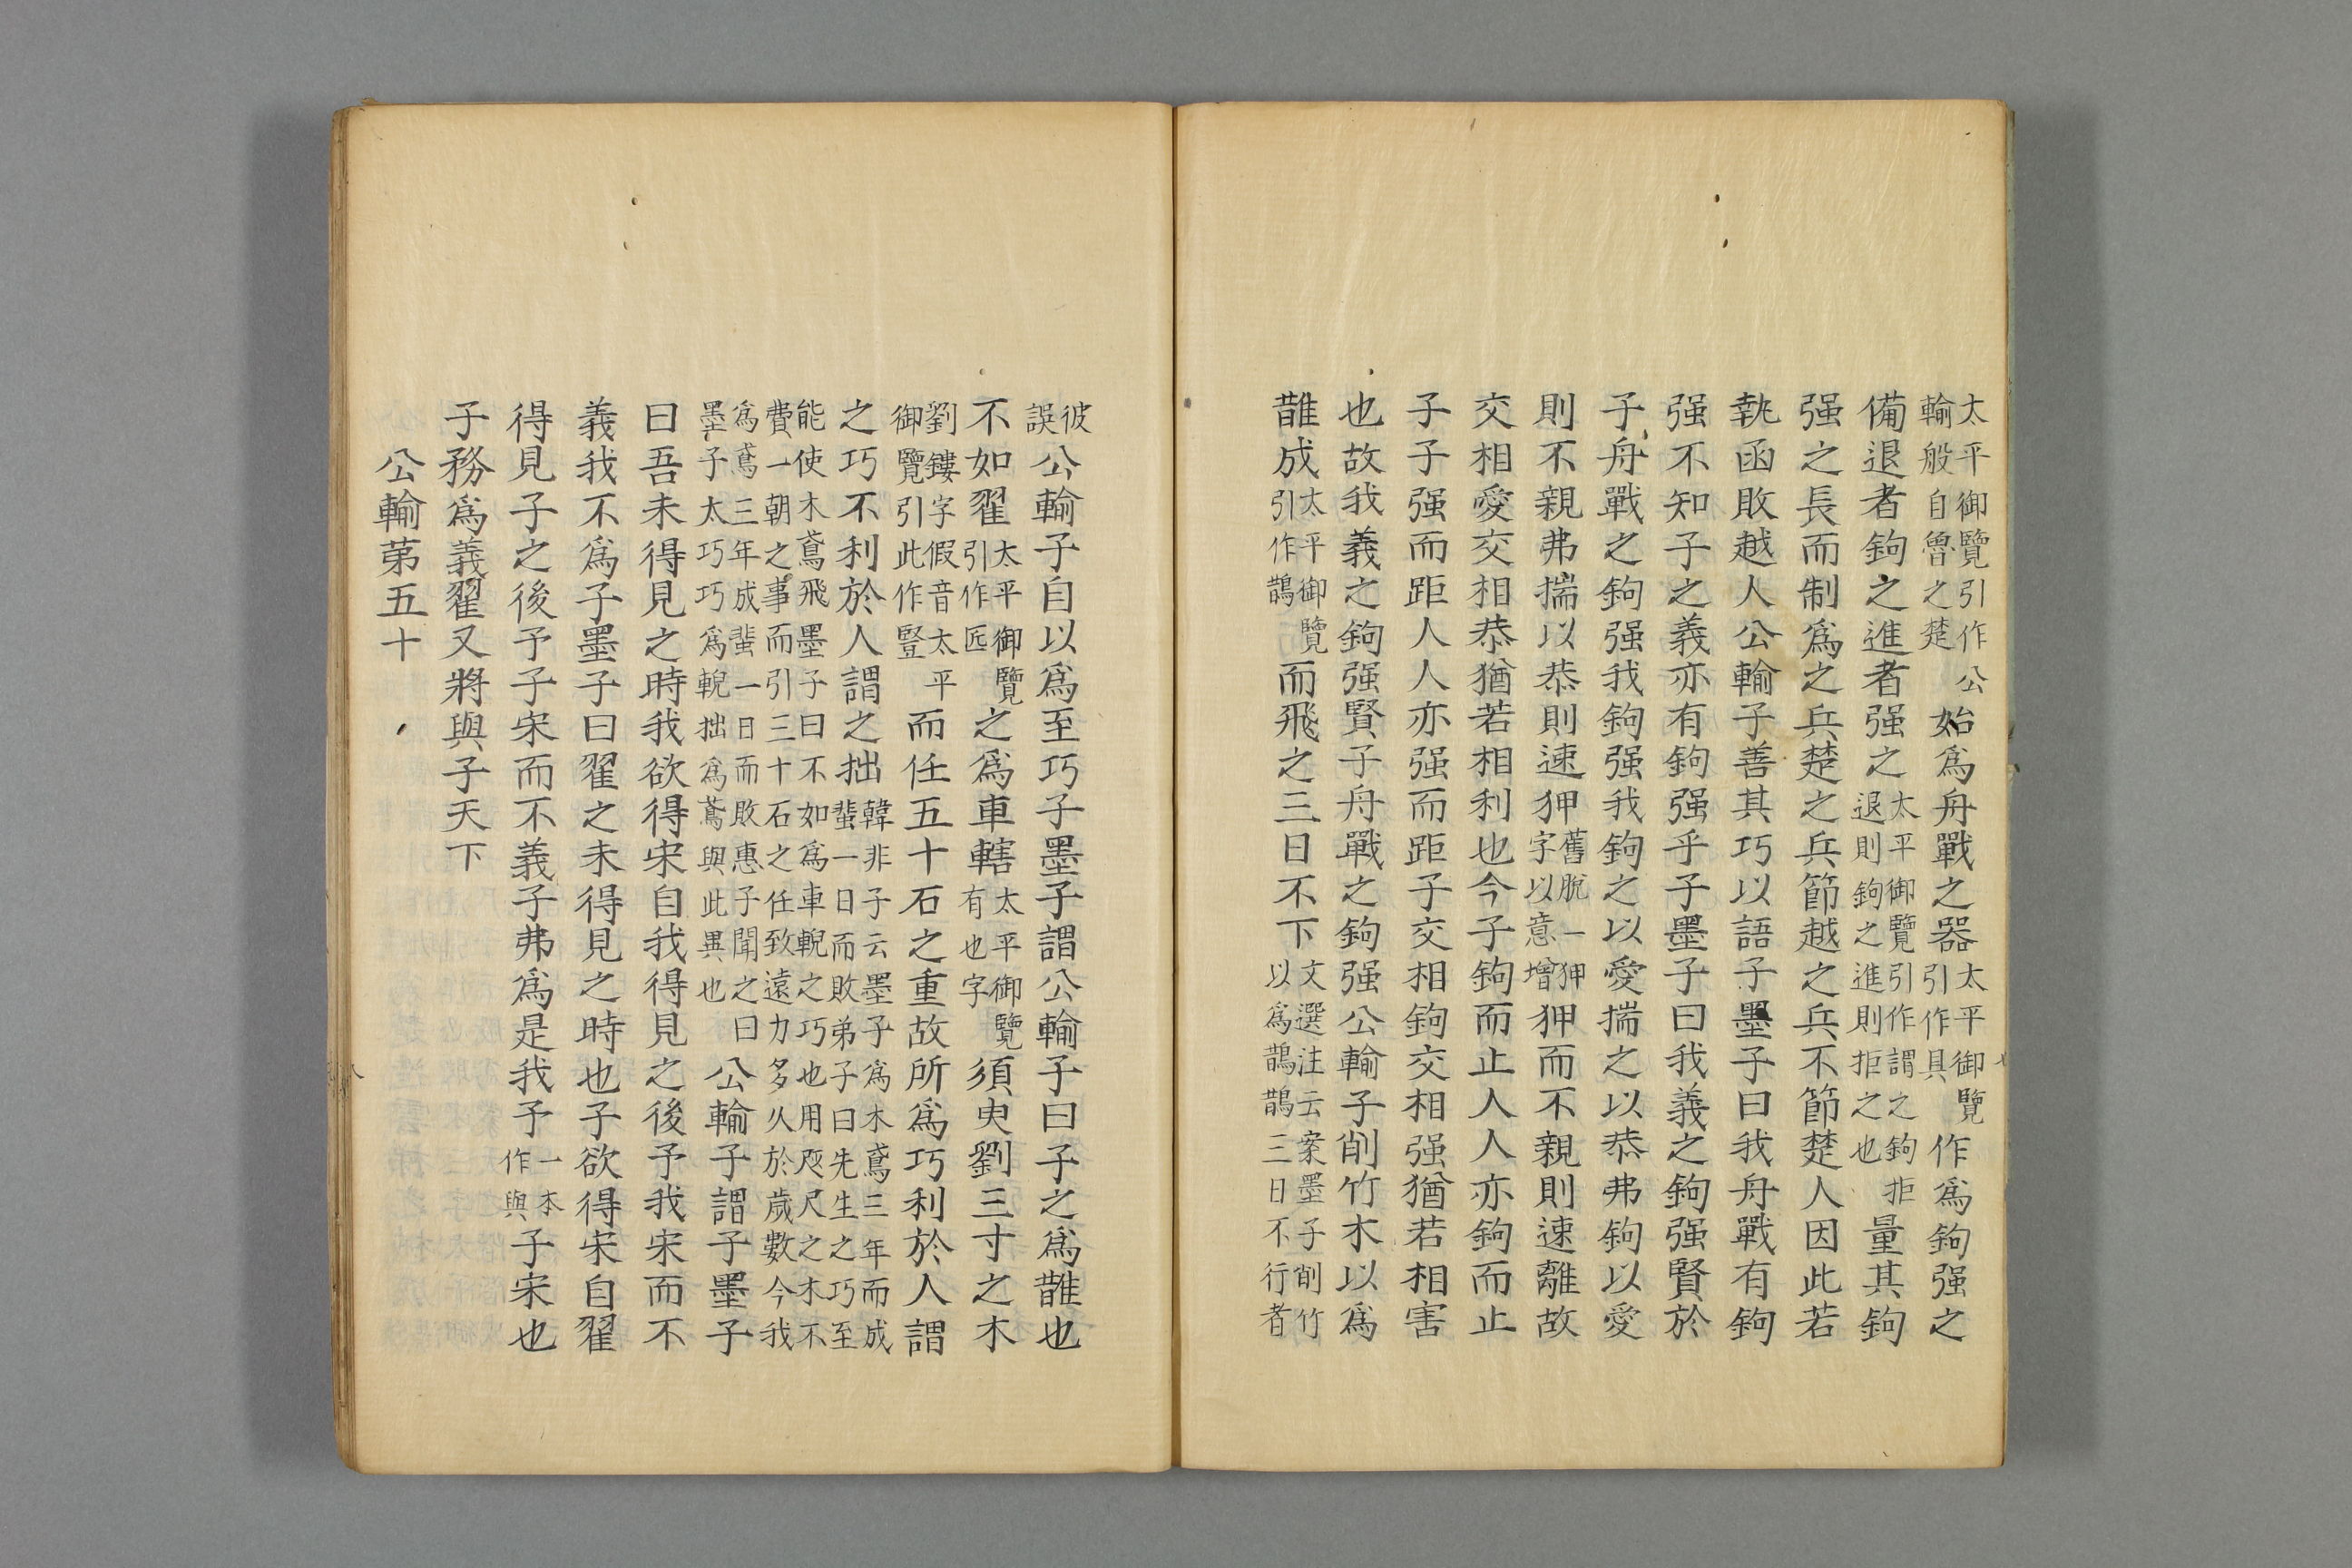 太平御覽引作公輸般自魯之楚始爲舟戰之器太平御覽引作具作爲鉤强之
備退者鉤之進者强之太平御覽引作謂之鉤拒退則鉤之進則拒之也量其鉤
强之長而制爲之兵楚之兵節越之兵不節楚人因此若
埶函敗越人公輸子善其巧以語子墨子曰我舟戰有鉤
强不知子之義亦有鉤强乎子墨子曰我義之鉤强賢於
子舟戰之鉤强我鉤强我鉤之以愛揣之以恭弗鉤以愛
則不親弗揣以恭則速狎舊脫一狎字以意增狎而不親則速離故
交相愛交相恭猶若相利也今子鉤而止人人亦鉤而止
子子强而距人人亦强而距子交相鉤交相强猶若相害
也故我義之鉤强賢子舟戰之鉤强公輸子削竹木以爲
䧿成太平御覽引作鵲而飛之三日不下文選注云案墨子削竹以爲鵲鵲三日不行者
彼誤公輸子自以爲至巧子墨子謂公輸子曰子之爲䧿也
不如翟太平御覽引作匠之爲車轄太平御覽有也字須臾劉三寸之木
劉鏤字假音太平御覽引此作豎而任五十石之重故所爲巧利於人謂
之巧不利於人謂之拙韓非子云墨子爲木鳶三年而成蜚一日而敗弟子曰先生之巧至
能使木鳶飛墨子曰不如爲車輗之巧也用咫尺之木不費一朝之事而引三十石之任致遠力多久於歲數今我
爲鳶三年成蜚一日而敗惠子聞之曰墨子太巧巧爲輗拙爲鳶與此異也公輸子謂子墨子
曰吾未得見之時我欲得宋自我得見之後予我宋而不
義我不爲子墨子曰翟之未得見之時也子欲得宋自翟
得見子之後予子宋而不義子弗爲是我予一本作與子宋也
子務爲義翟又將與子天下
公輸第五十